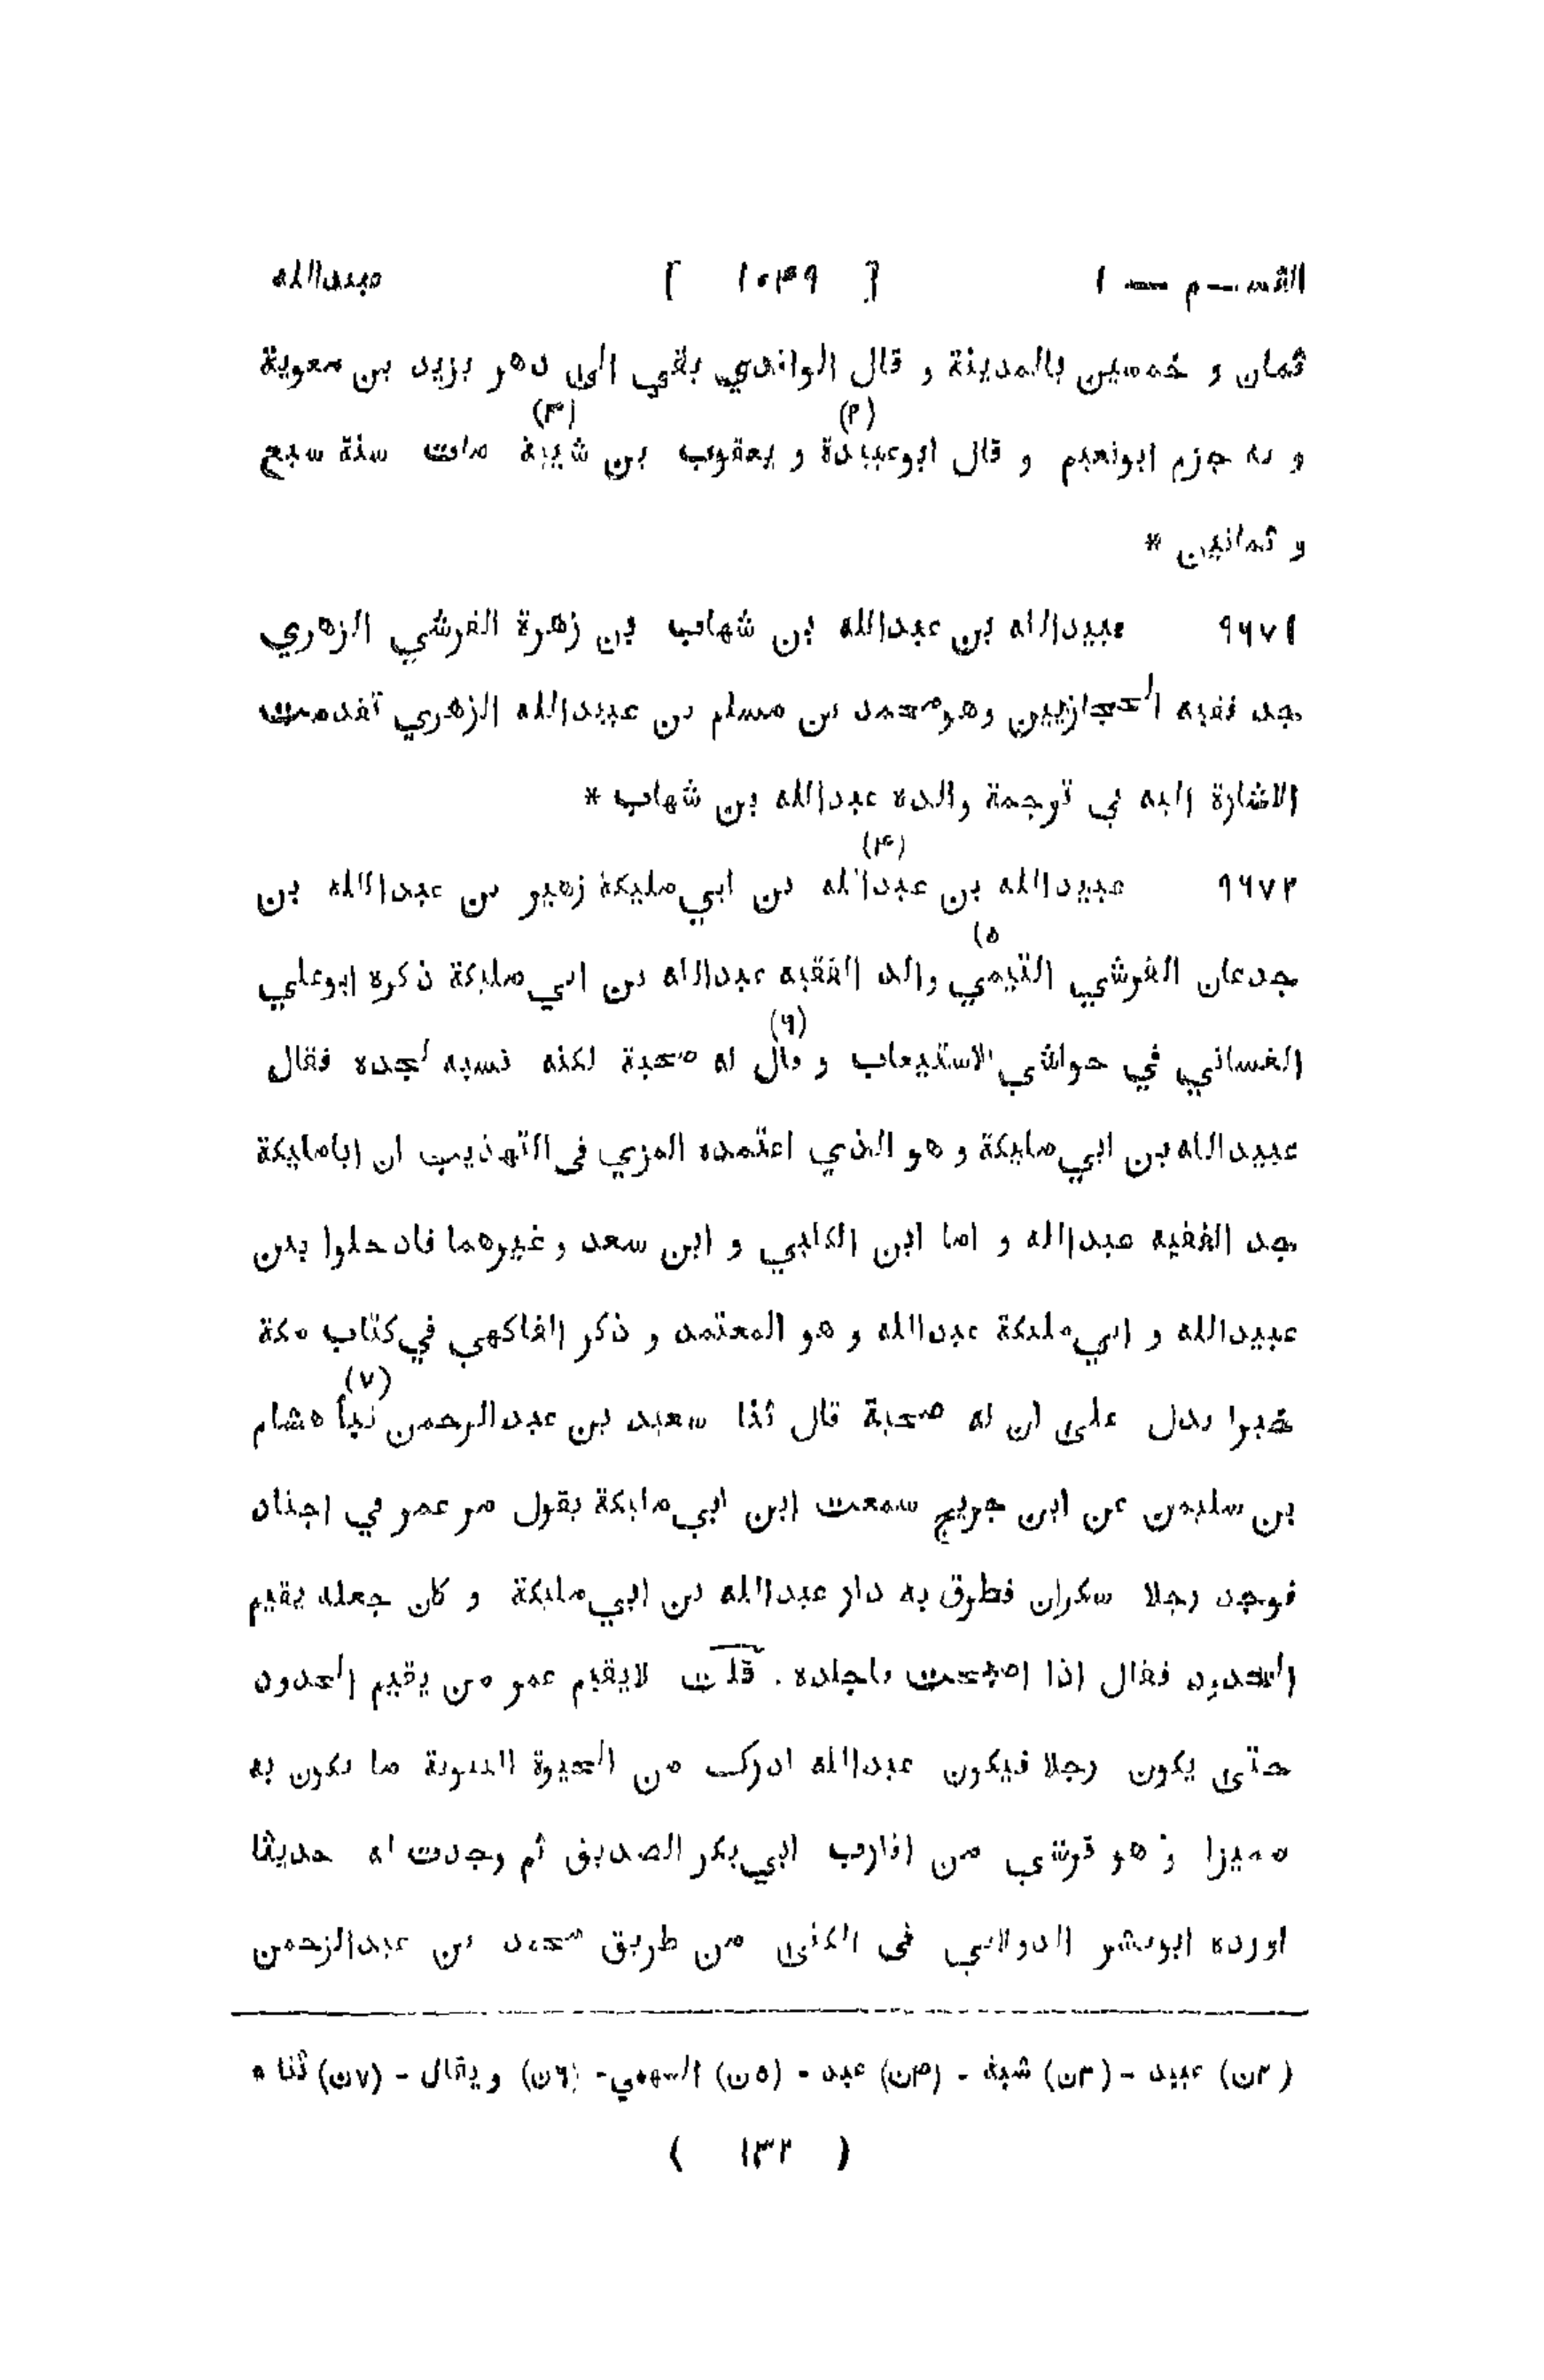 القسم — ١ [ ١٠٤٩ ] عبيدالله
ثمان و خمسين بالمدينة و قال الواقدي بقي الى دهر يزيد بن معوية
و به جزم ابونعيم و قال ابوعبيدة (٢) و يعقوب بن شيبة (٣) مات سنة سبع
و ثمانين *
٩٦٧١ عبيدالله بن عبدالله بن شهاب بن زهرة القرشي الزهري
جد فقيه الحجازيين وهومحمد بن مسلم بن عبيدالله الزهري تقدمت
الاشارة اليه في ترجمة والده عبدالله بن شهاب *
٩٦٧٢ عبيدالله بن عبدالله (٤) بن ابي مليكة زهير بن عبدالله بن
جدعان القرشي التيمي (٥ والد الفقيه عبدالله بن ابي مليكة ذكره ابوعلي
الغساني في حواشي الاستيعاب و قال (٦) له صحبة لكنه نسبه لجده فقال
عبيدالله بن ابي مليكة و هو الذي اعتمده المزي فى التهذيب ان ابامليكة
جد الفقيه عبدالله و اما ابن الكلبي و ابن سعد و غيرهما فادخلوا بين
عبيدالله و ابي مليكة عبدالله و هو المعتمد و ذكر الفاكهي في كتاب مكة
خبرا يدل على ان له صحبة قال ثنا سعيد بن عبدالرحمن نبأ (٧) هشام
بن سليمن عن ابن جريج سمعت ابن ابي مليكة يقول مر عمر في اجناد
فوجد رجلا سكران فطرق به دار عبدالله بن ابي مليكة و كان جعله يقيم
الحدود فقال اذا اصبحت فاجلده . قلت لايقيم عمر من يقيم الحدود
حتى يكون رجلا فيكون عبدالله ادرك من الحيوة النبوية ما يكون به
مميزا و هو قرشي من اقارب ابي بكر الصديق ثم وجدت له حديثا
اورده ابوبشر الدولابي فى الكنى من طريق محمد بن عبدالرحمن
(٢ن) عبيد - (٣ن) شبة - (٤ن) عبد - (٥ن) السهمي - (٦ن) و يقال - (٧ن) ثنا *
( ١٣٢ )